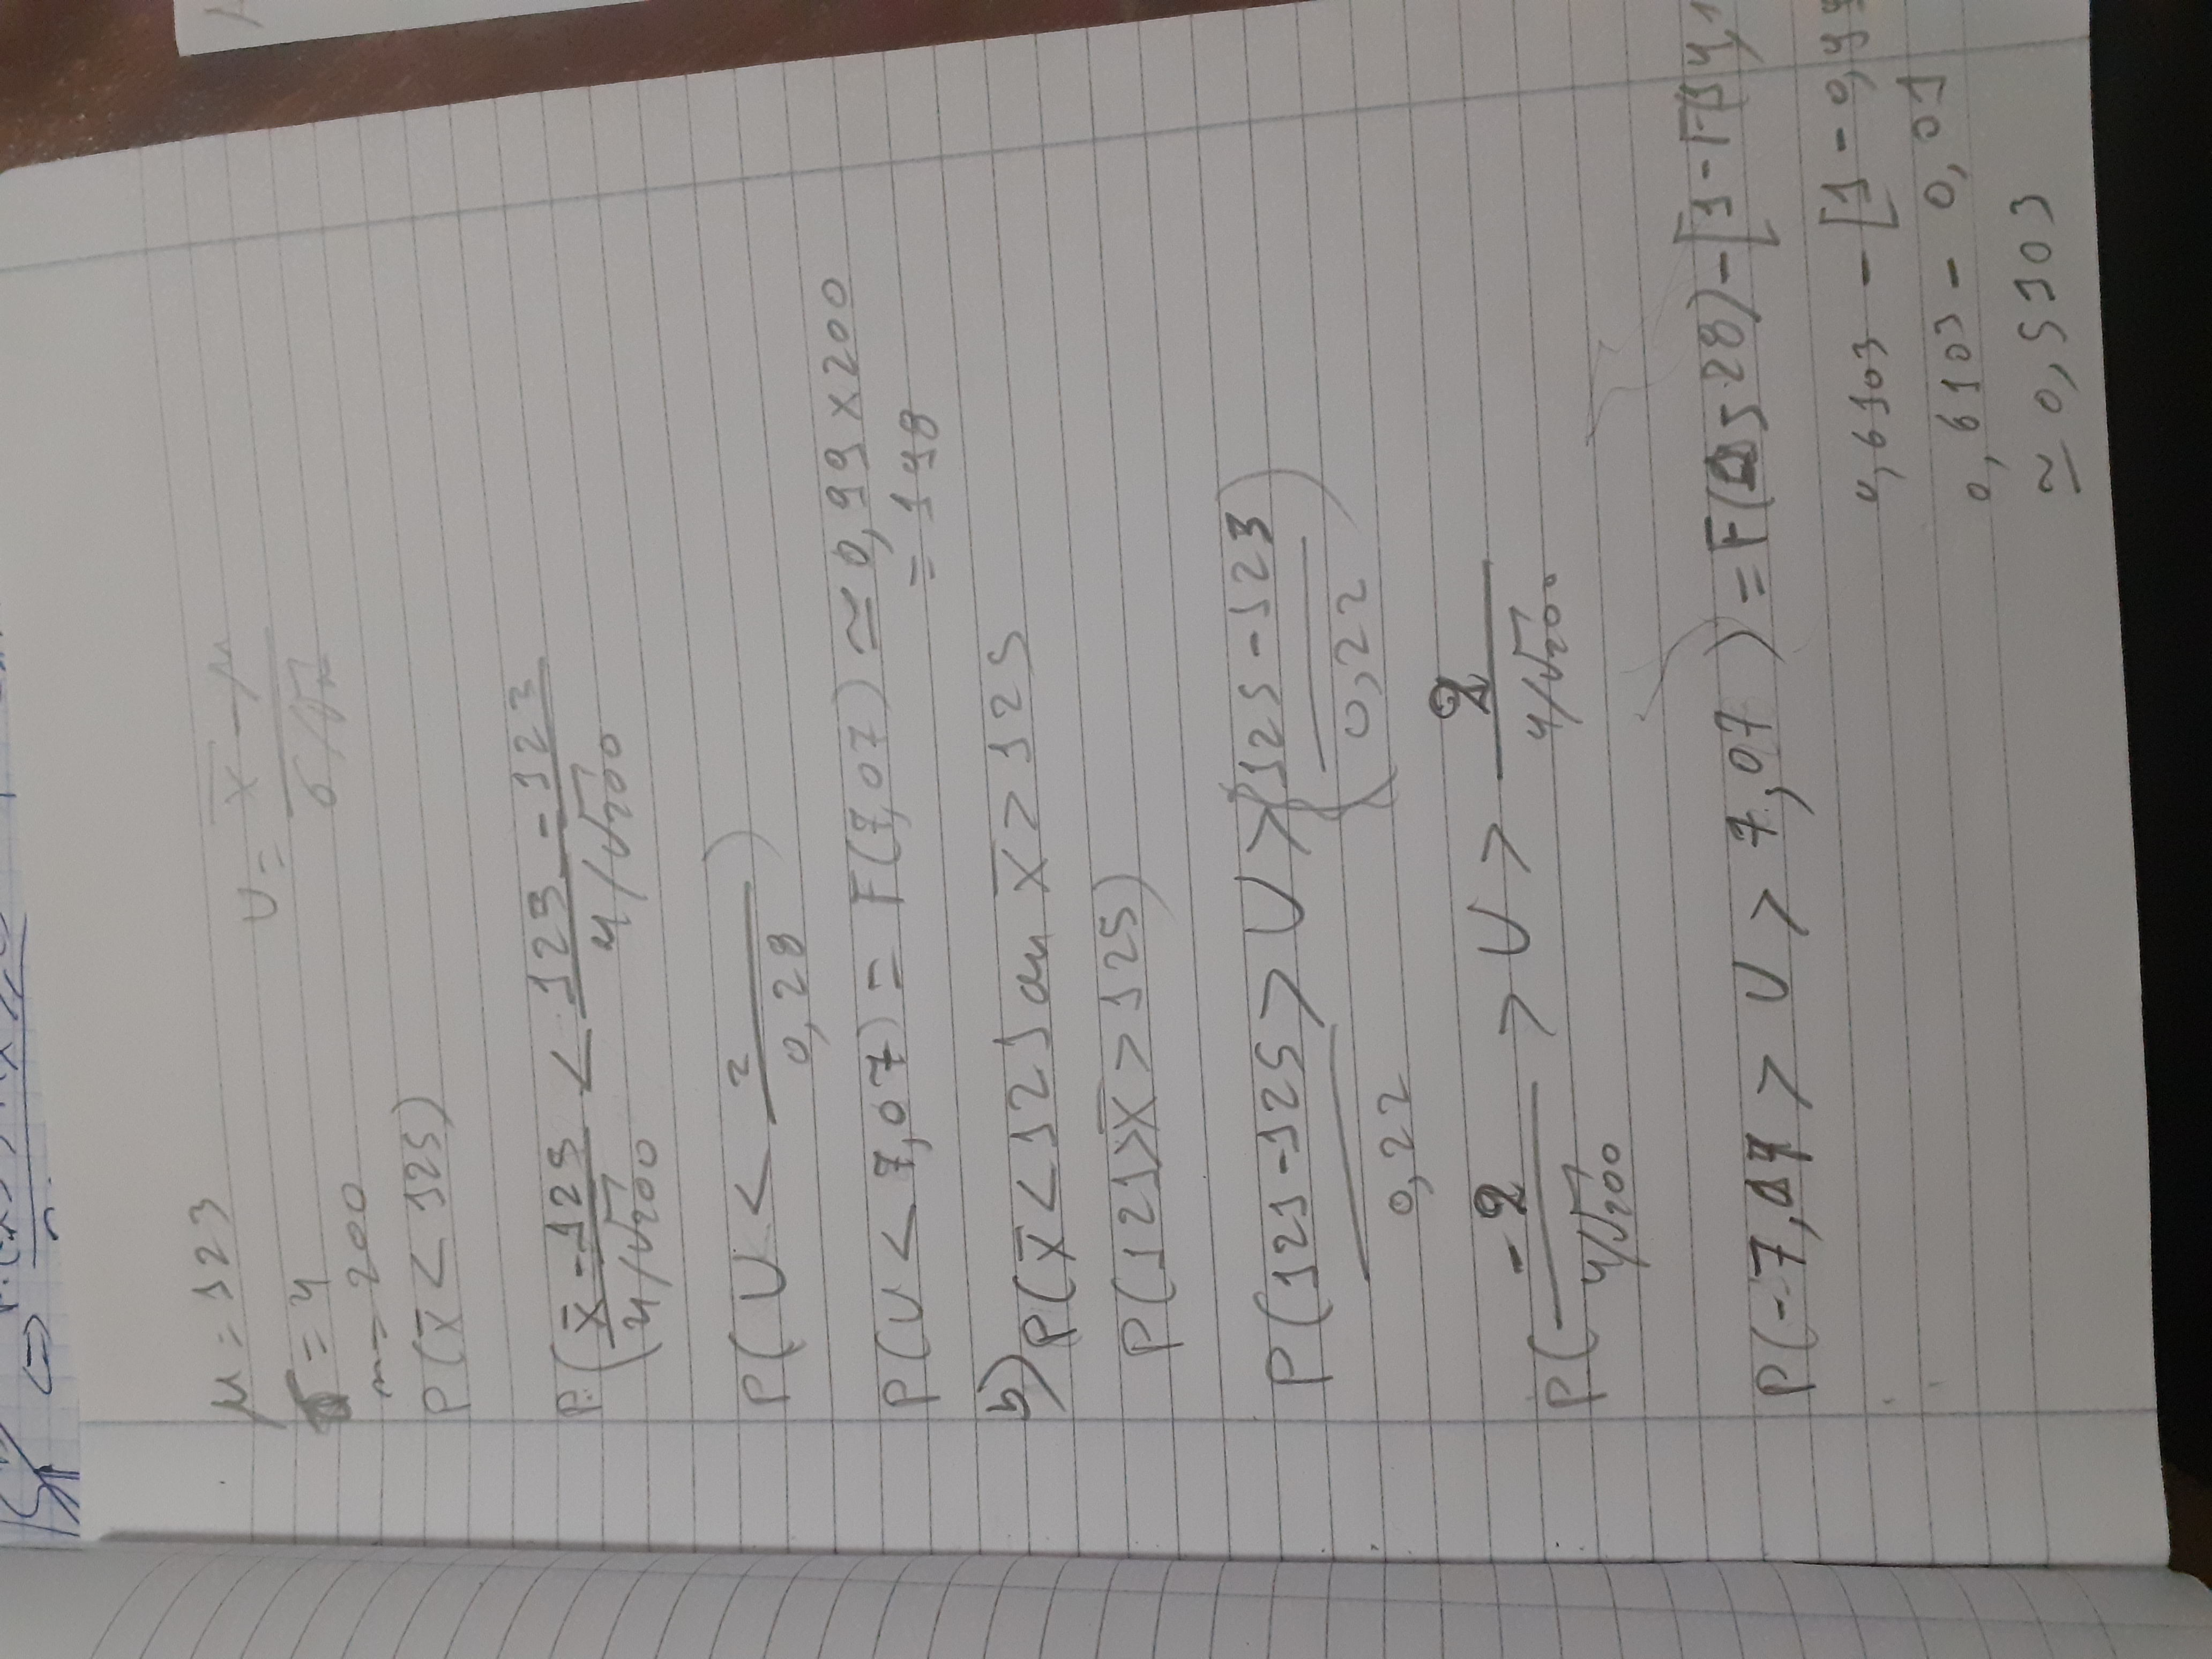 μ = 123
U = (x̄ - μ) / (σ/√n)
σ = 4
n = 200
P(x̄ < 125)
P((x̄ - 125) / (4/√200) < (125 - 123) / (4/√200)
P(U < 2 / 0,28)
P(U < 7,07) = F(7,07) ≃ 0,99 x 200
= 198
b) P(x̄ < 121 ou x̄ > 125
P(121 > x̄ > 125)
P((121 - 125) / 0,22 > U > (125 - 123) / 0,22)
P(-2 / (4/√200) > U > 2 / (4/√200)
P(-7,07 > U > 7,07) = F( 28) - [1 - F(14,1
0,6103 - [1 - 0,99
0,6103 - 0,01
≃ 0,5103